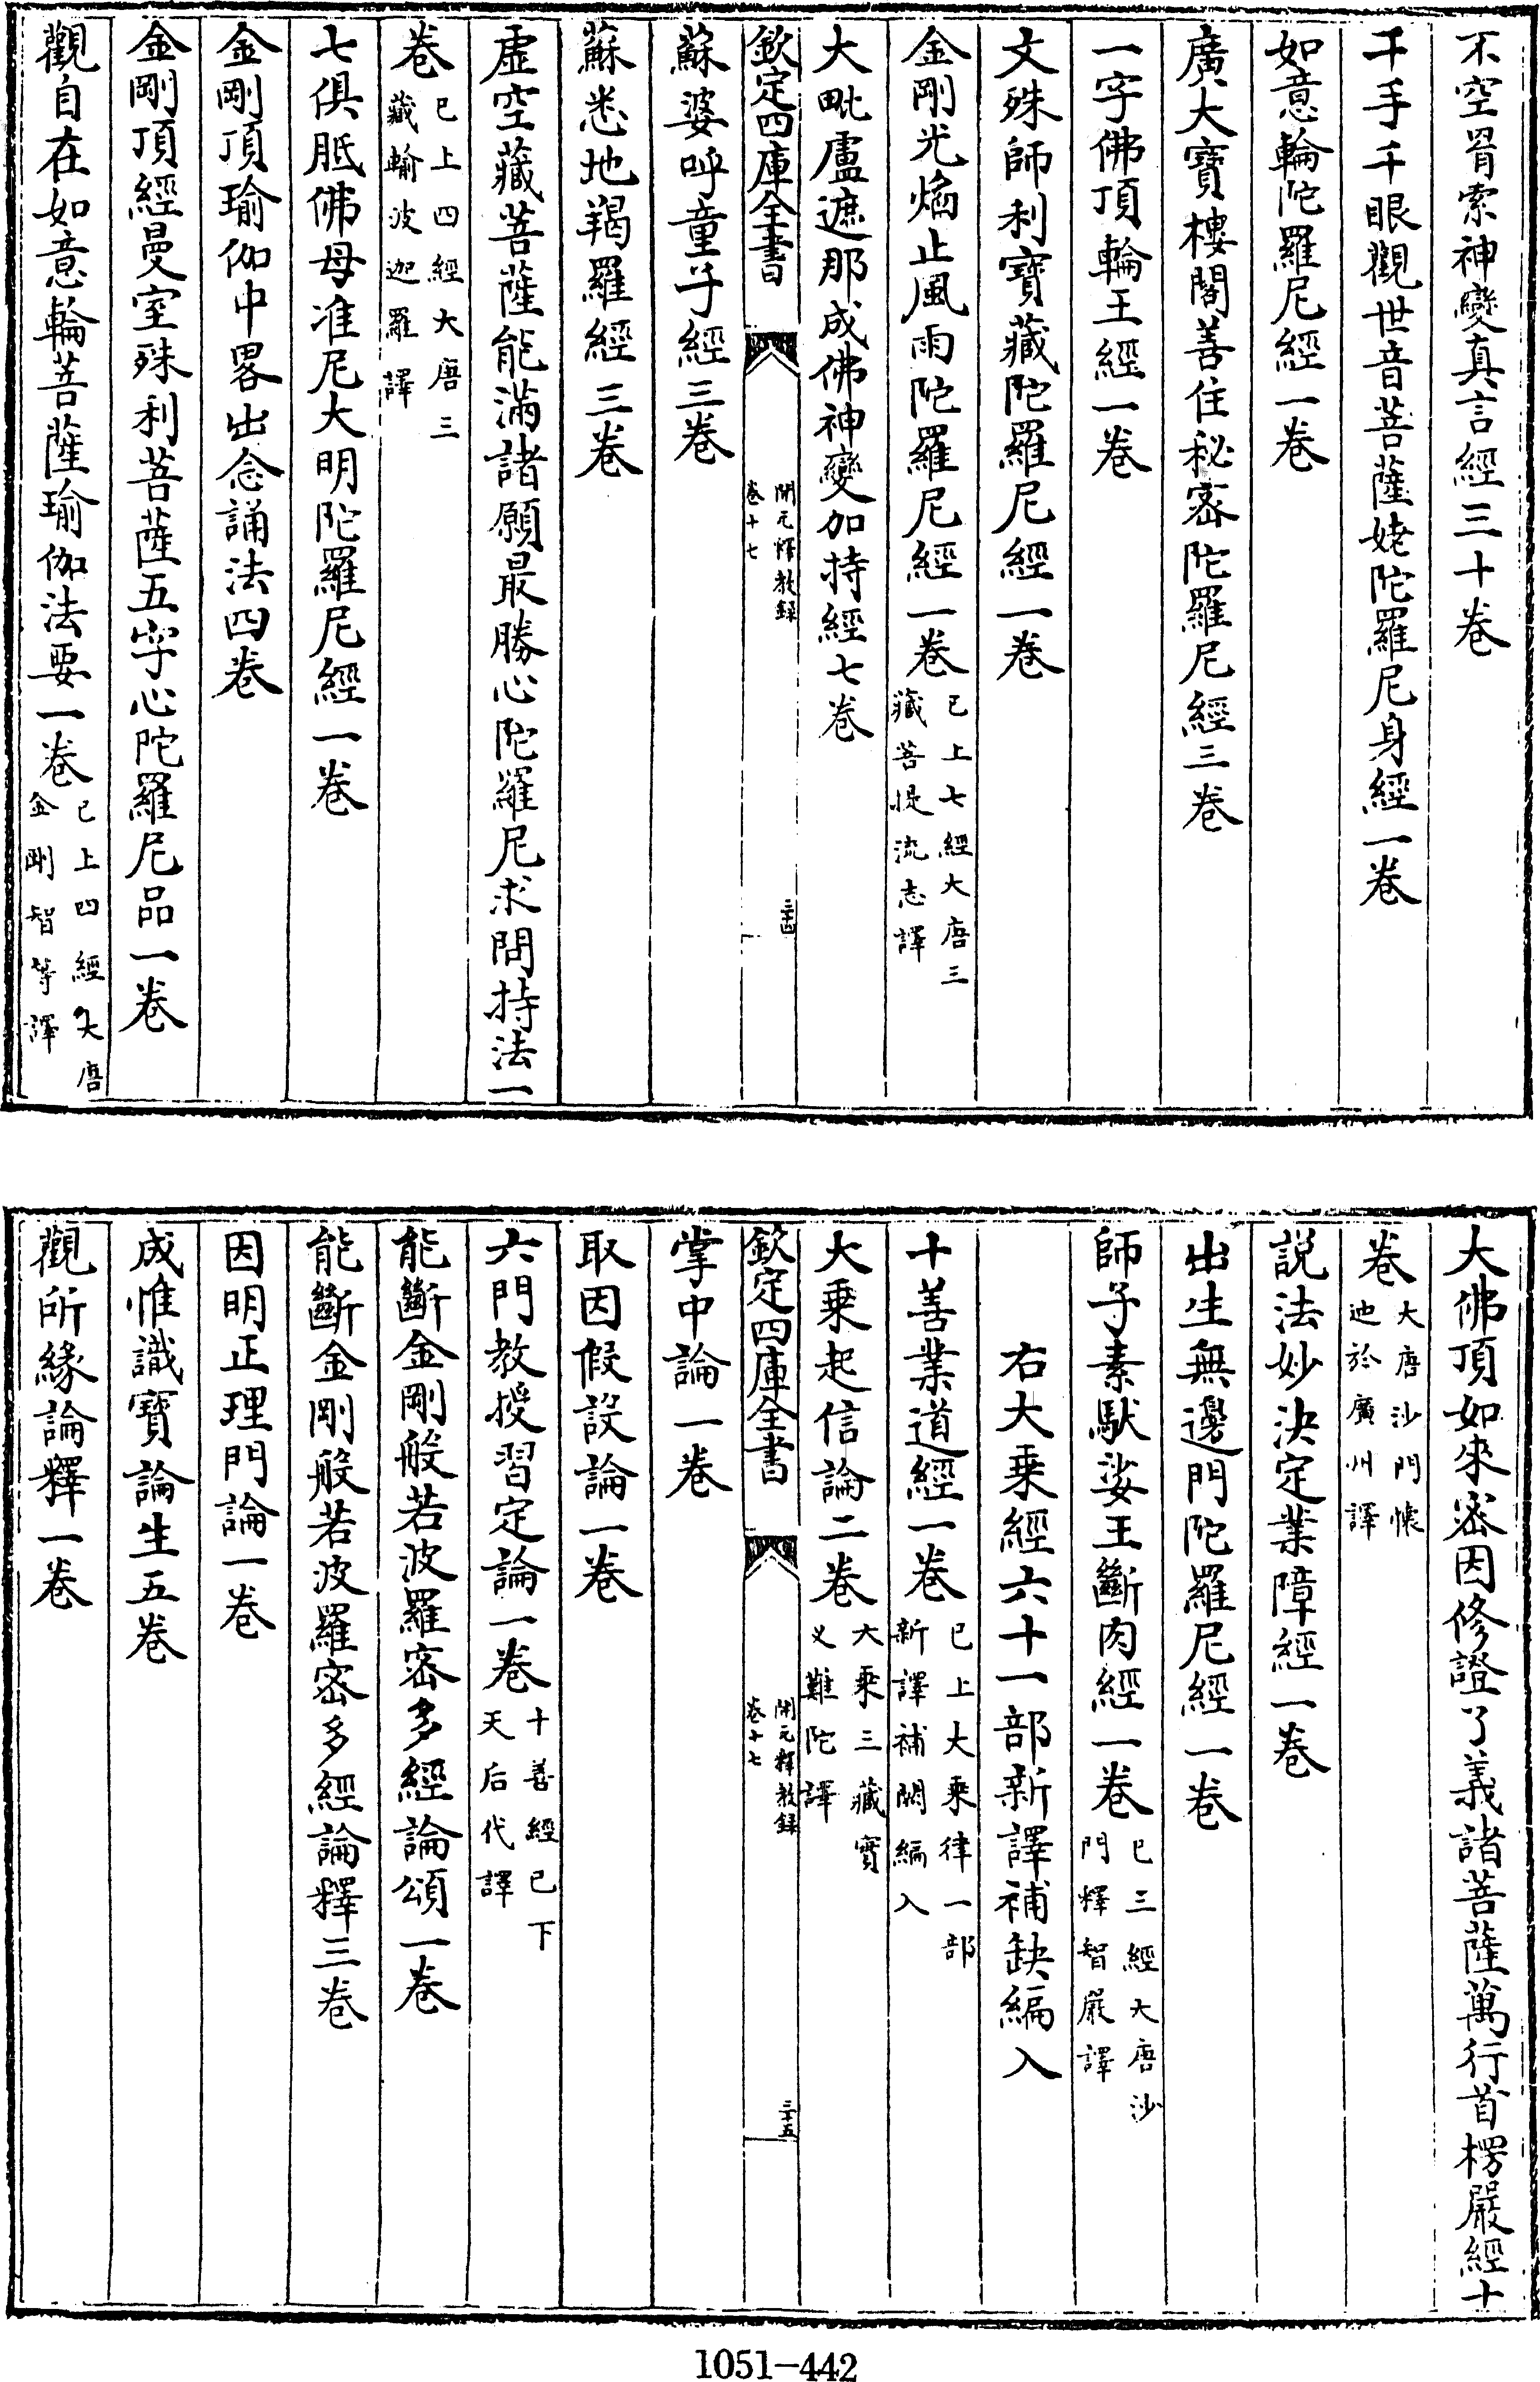 不空罥索神變真言經三十卷
千手千眼觀世音菩薩姥陀羅尼身經一卷
如意輪陀羅尼經一卷
廣大寶樓閣善住秘密陀羅尼經三卷
一字佛頂輪王經一卷
文殊師利寶藏陀羅尼經一卷
金剛光焰止風雨陀羅尼經一卷已上七經大唐三藏菩提流志譯
大毗盧遮那成佛神變加持經七卷
欽定四庫全書
開元釋教録
卷十七
三十四
蘇婆呼童子經三卷
蘇悉地羯羅經三卷
虛空藏菩薩能滿諸願最勝心陀羅尼求問持法一
卷已上四經大唐三藏輸波迦羅譯
七俱胝佛母准尼大明陀羅尼經一卷
金剛頂瑜伽中畧出念誦法四卷
金剛頂經曼室殊利菩薩五字心陀羅尼品一卷
觀自在如意輪菩薩瑜伽法要一卷已上四經大唐金剛智等譯
大佛頂如來密因修證了義諸菩薩萬行首楞嚴經十
卷大唐沙門懷迪於廣州譯
説法妙決定業障經一卷
出生無邊門陀羅尼經一卷
師子素馱娑王斷肉經一卷已三經大唐沙門釋智嚴譯
右大乗經六十一部新譯補缺編入
十善業道經一卷已上大乗律一部新譯補闕編入
大乗起信論二卷大乗三藏實义難陀譯
欽定四庫全書
開元釋教録
卷十七
三十五
掌中論一卷
取因假設論一卷
六門教授習定論一卷十善經已下天后代譯
能斷金剛般若波羅密多經論頌一卷
能斷金剛般若波羅密多經論釋三卷
因明正理門論一卷
成惟識寶論生五卷
觀所緣論釋一卷
1051-442